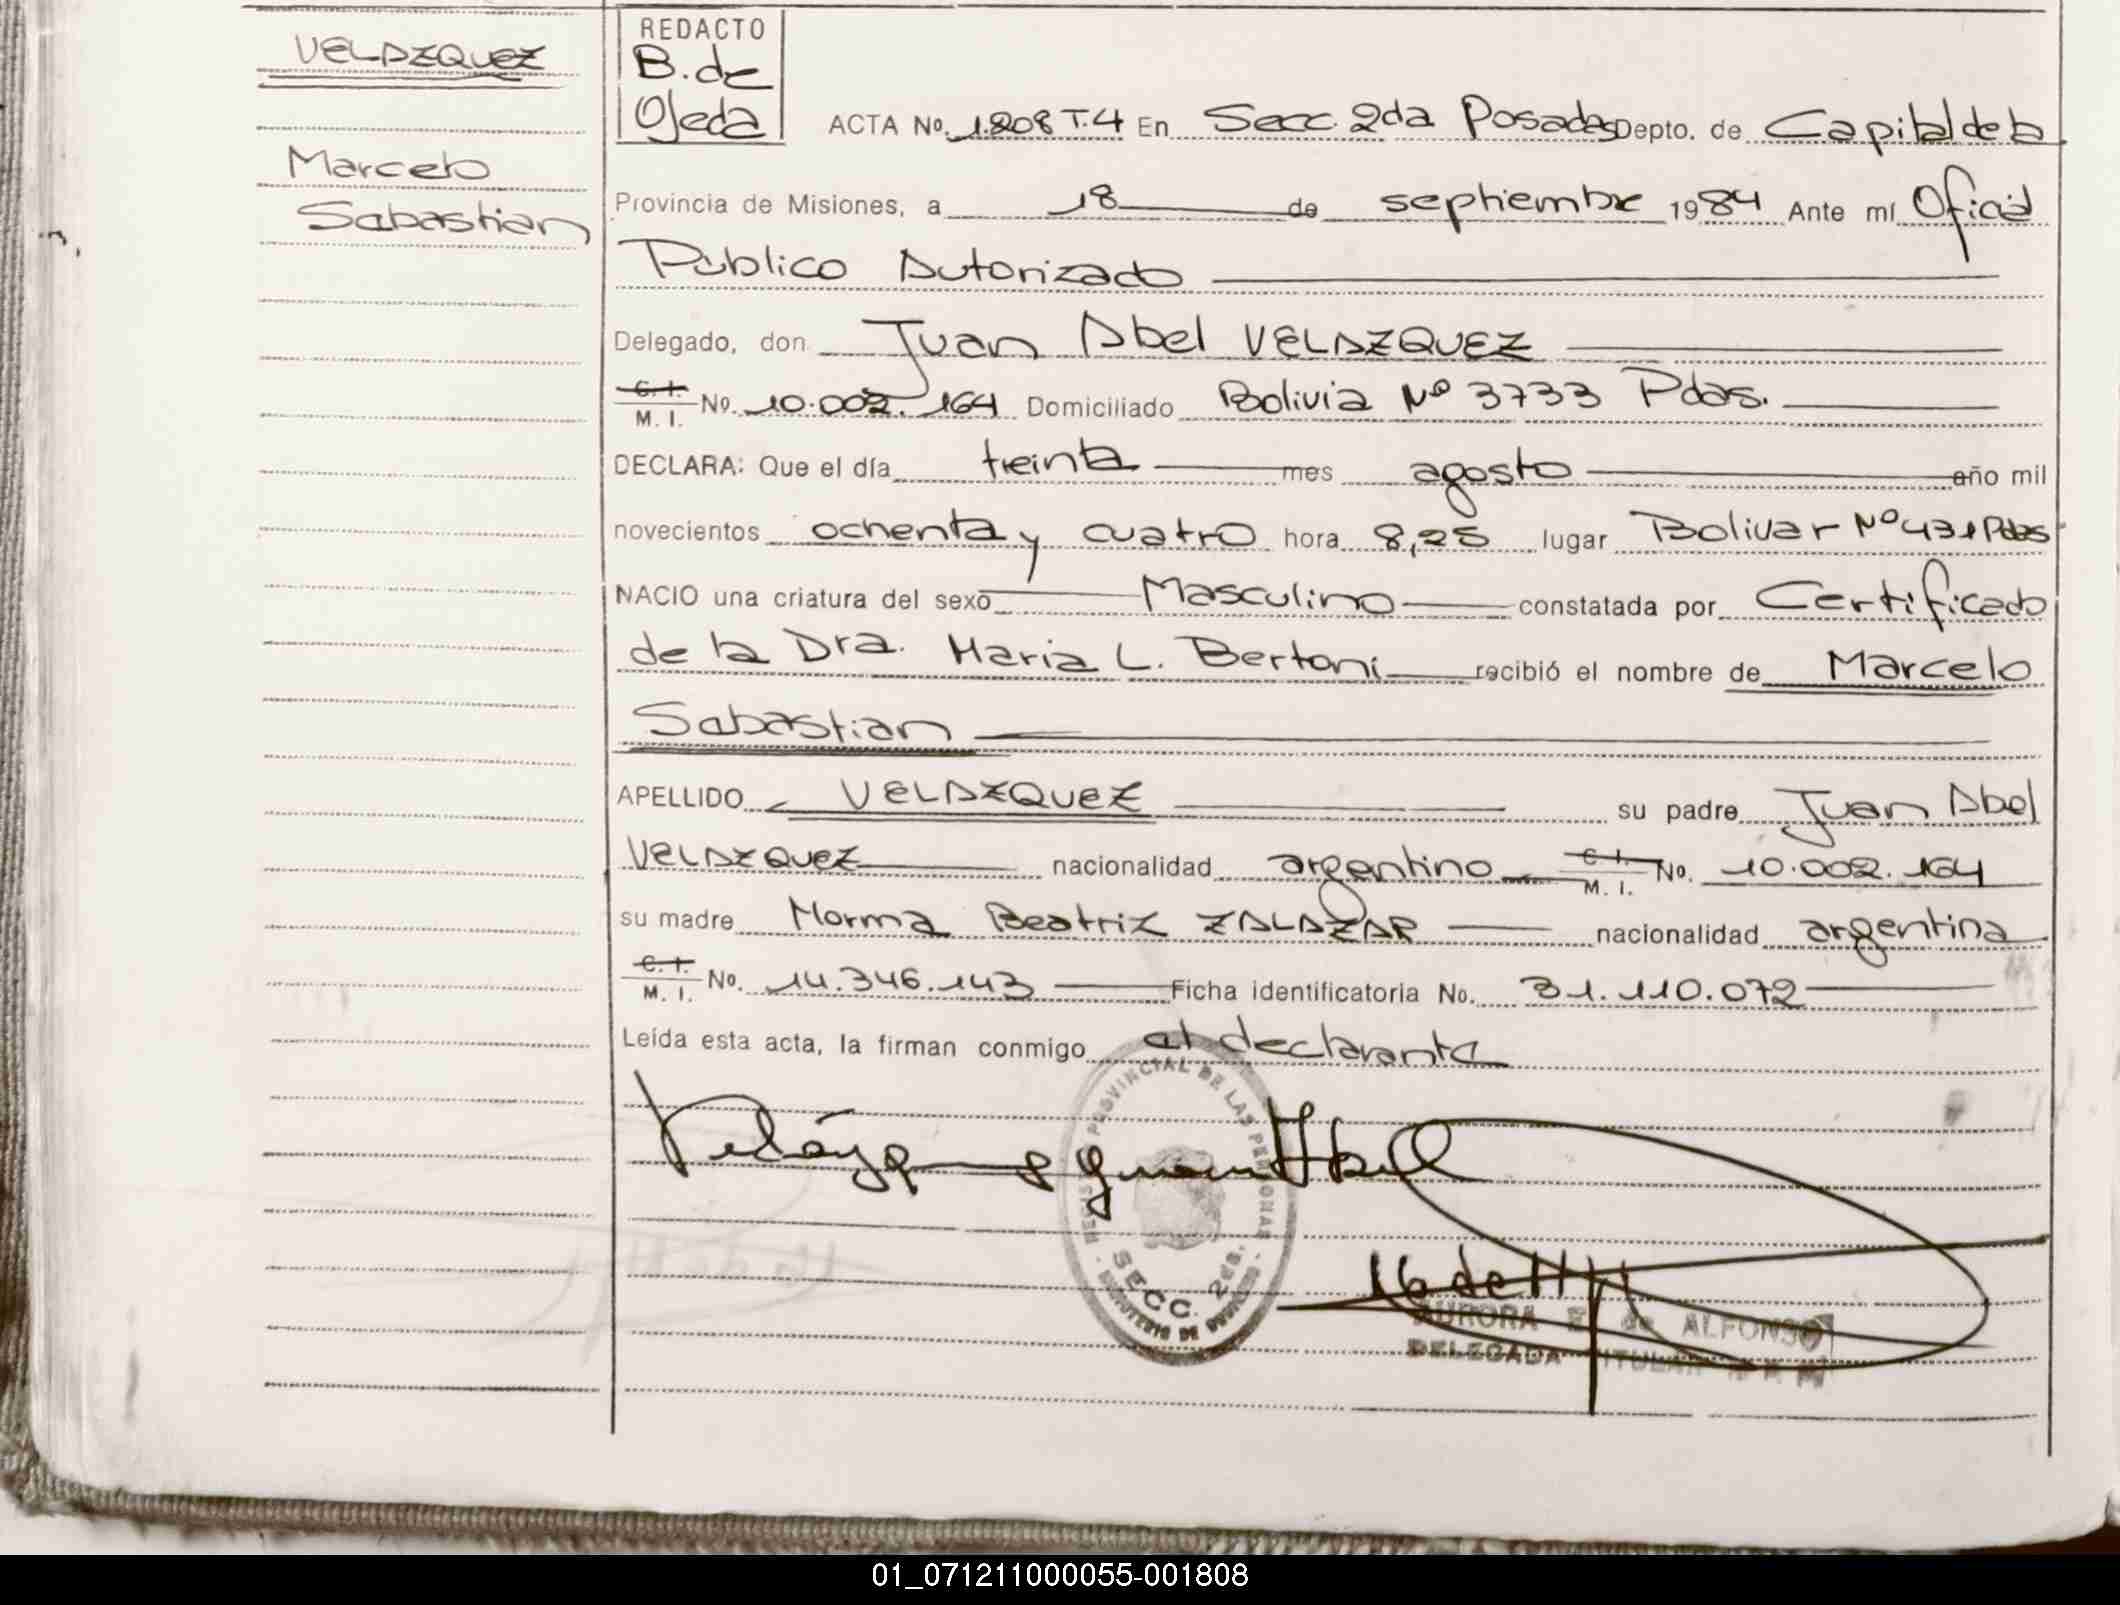 VELAZQUEZ
Marcelo
Sabastian
REDACTO
B. de
Ojeda
ACTA No. 1.808 T.4 En Secc. 2da Posadas Depto. de Capital de la
Provincia de Misiones, a 18 de septiembre 1984 Ante mí Oficial
Público Autorizado
Delegado, don Juan Abel VELAZQUEZ
C. I. / M. I. No. 10.002.164 Domiciliado Bolivia Nº 3733 Pdas.
DECLARA: Que el día treinta mes agosto año mil
novecientos ochenta y cuatro hora 8,25 lugar Bolivar Nº 431 Pdas
NACIO una criatura del sexo Masculino constatada por Certificado
de la Dra. Maria L. Bertoni recibió el nombre de Marcelo
Sabastian
APELLIDO VELAZQUEZ su padre Juan Abel
VELAZQUEZ nacionalidad argentino C. I. / M. I. No. 10.002.164
su madre Norma Beatriz ZALAZAR nacionalidad argentina
C. I. / M. I. No. 14.346.143 Ficha identificatoria No. 31.110.072
Leída esta acta, la firman conmigo el declarante
Velázque Juan Abel
PROVINCIAL DE LAS PERSONAS
SECC. 2da.
MINISTERIO DE GOBIERNO
AURORA E de ALFONSO
DELEGADA TITULAR
01_071211000055-001808